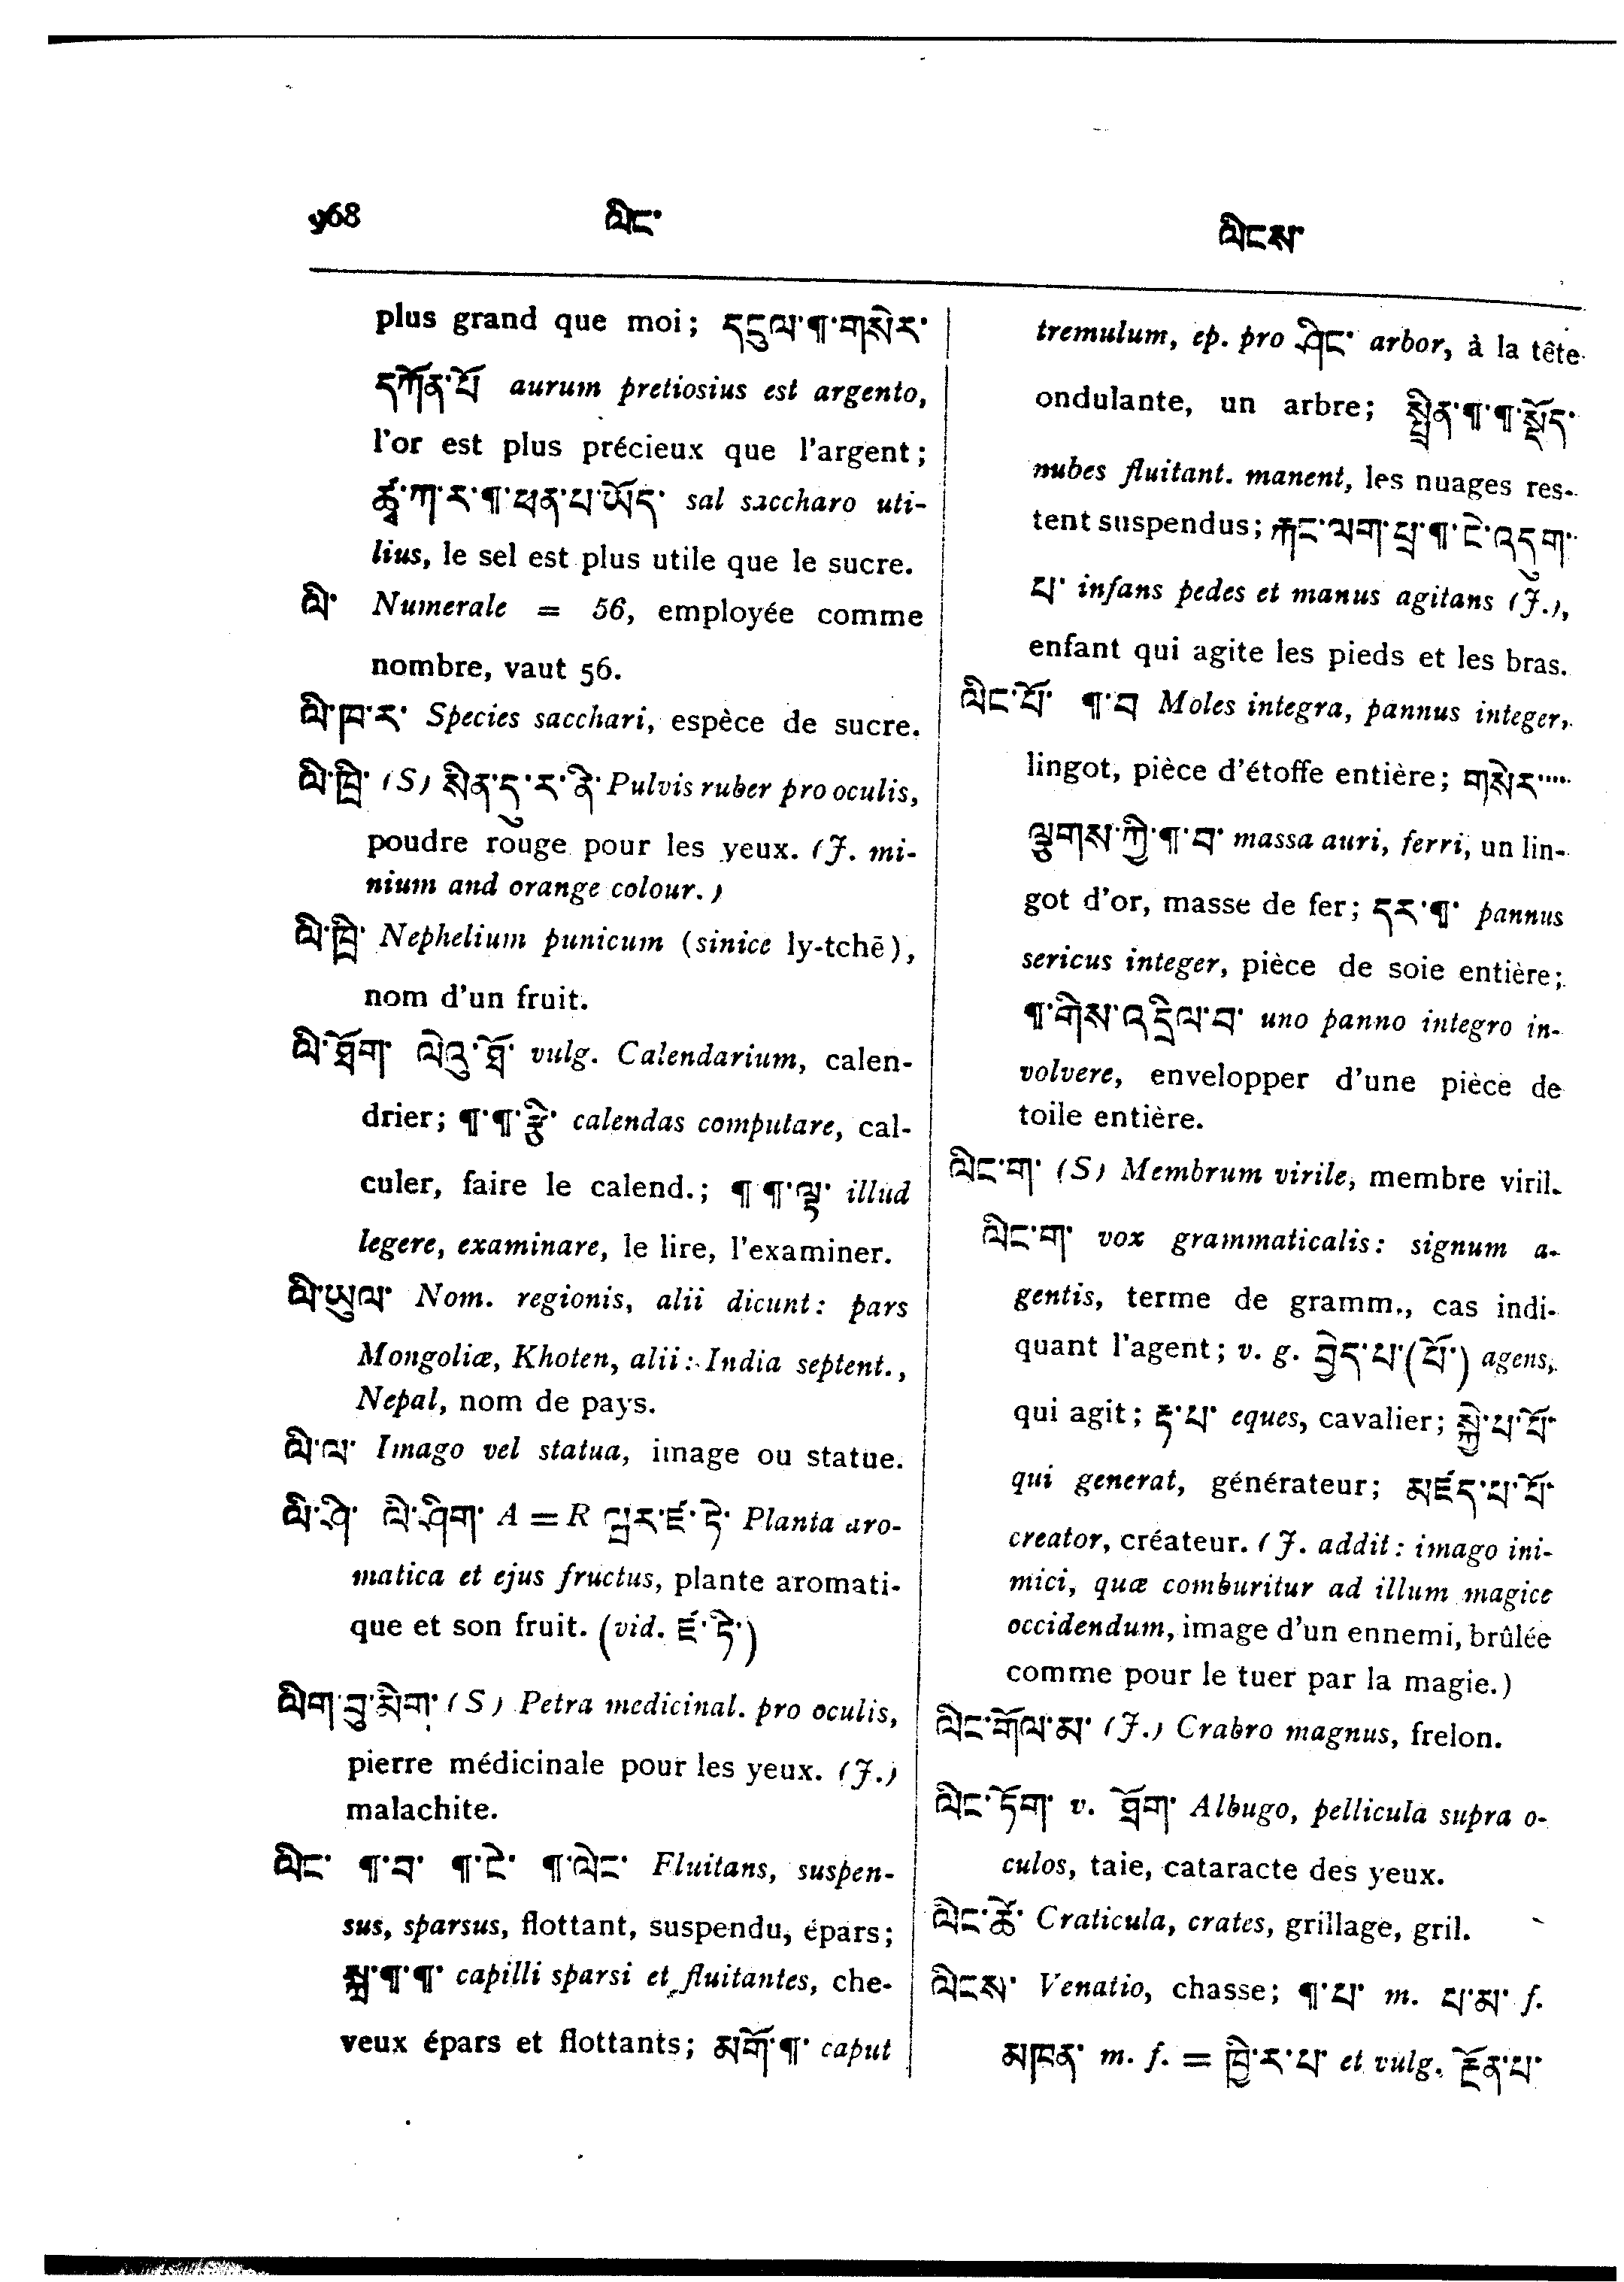 968 ལིང་ ལིངས་
plus grand que moi; དངུལ་¶་གསེར་
དཀོན་པོ aurum pretiosius est argento,
l'or est plus précieux que l'argent;
ཚྭ་ཀ་ར་¶་ཕན་པ་ཡོད་ sal saccharo uti-
lius, le sel est plus utile que le sucre.
ལི་ Numerale = 56, employée comme
nombre, vaut 56.
ལི་ཁ་ར་ Species sacchari, espèce de sucre.
ལི་ཁྲི་ (S) སིན་དུ་ར་ནི་ Pulvis ruber pro oculis,
poudre rouge pour les yeux. (J. mi-
nium and orange colour.)
ལི་ཁྲི་ Nephelium punicum (sinice ly-tchē),
nom d'un fruit.
ལི་ཐོག་ ལེའུ་ཐོ་ vulg. Calendarium, calen-
drier; ¶་¶་རྩི་ calendas computare, cal-
culer, faire le calend.; ¶ ¶་ལྟ་ illud
legere, examinare, le lire, l'examiner.
ལི་ཡུལ་ Nom. regionis, alii dicunt: pars
Mongoliæ, Khoten, alii: India septent.,
Nepal, nom de pays.
ལི་ལ་ Imago vel statua, image ou statue.
ལི་ཤི་ ལེ་ཤིག་ A = R Planta aro-
matica et ejus fructus, plante aromati-
que et son fruit. (vid. ཛ་ཏི་)
ལིག་བུ་མིག་ (S) Petra medicinal. pro oculis,
pierre médicinale pour les yeux. (J.)
malachite.
ལིང་ ¶་བ་ ¶་ངེ་ ¶་ལེང་ Fluitans, suspen-
sus, sparsus, flottant, suspendu, épars;
སྐྲ་¶་¶་ capilli sparsi et fluitantes, che-
veux épars et flottants; མགོ་¶་ caput
tremulum, ep. pro ཤིང་ arbor, à la tête
ondulante, un arbre; སྤྲིན་¶་¶་སྡོད་
nubes fluitant. manent, les nuages res-
tent suspendus; རྐང་ལག་ཕྲ་¶་ངེ་འདུག་
པ་ infans pedes et manus agitans (J.),
enfant qui agite les pieds et les bras.
ལིང་པོ་ ¶་བ Moles integra, pannus integer,
lingot, pièce d'étoffe entière; གསེར་....
ལྕགས་ཀྱི་¶་བ་ massa auri, ferri, un lin-
got d'or, masse de fer; དར་¶་ pannus
sericus integer, pièce de soie entière;
¶་གིས་འདྲིལ་བ་ uno panno integro in-
volvere, envelopper d'une pièce de
toile entière.
ལིང་ག་ (S) Membrum virile, membre viril.
ལིང་ག་ vox grammaticalis: signum a-
gentis, terme de gramm., cas indi-
quant l'agent; v. g. བྱེད་པ་(པོ་) agens,
qui agit; རྟ་པ་ eques, cavalier; སྐྱེ་པ་པོ་
qui generat, générateur; མཛད་པ་པོ་
creator, créateur. (J. addit: imago ini-
mici, quæ comburitur ad illum magice
occidendum, image d'un ennemi, brûlée
comme pour le tuer par la magie.)
ལིང་གོལ་མ་ (J.) Crabro magnus, frelon.
ལིང་ཏོག་ v. ཐོག་ Albugo, pellicula supra o-
culos, taie, cataracte des yeux.
ལིང་ཚེ་ Craticula, crates, grillage, gril.
ལིངས་ Venatio, chasse; ¶་པ་ m. པ་མ་ f.
མཁན་ m. f. = ཁྱི་ར་པ་ et vulg. རྔོན་པ་